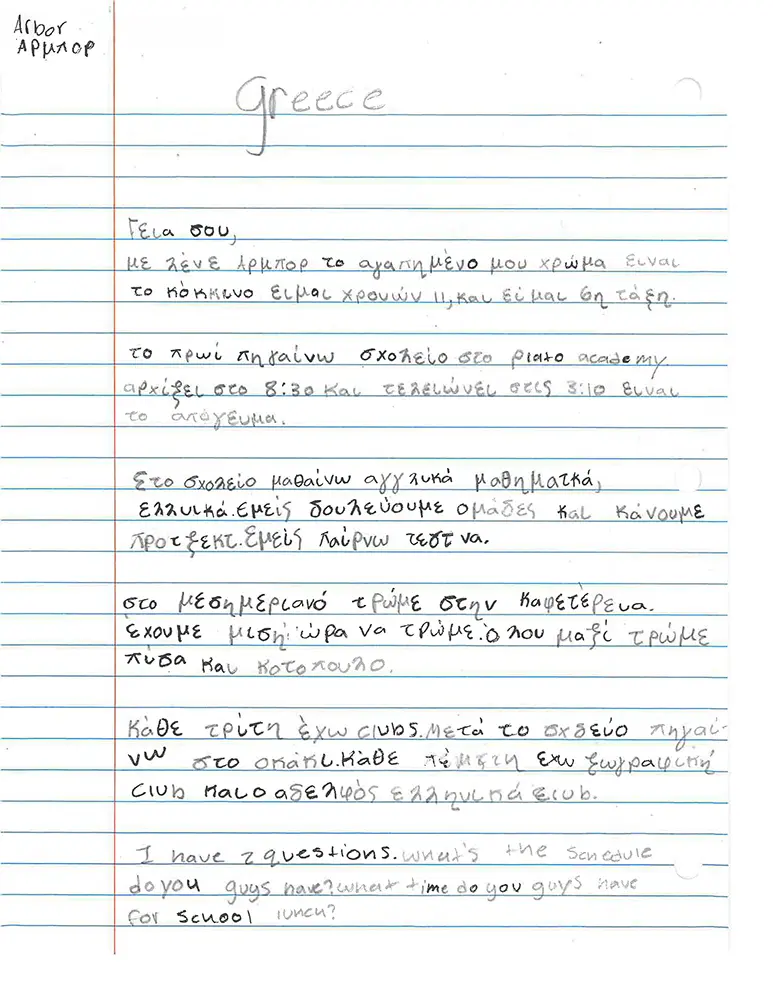 Arbor
Αρμπορ
Greece
Γεια σου,
με λένε Αρμπορ το αγαπημένο μου χρώμα ειναι
το κόκκινο ειμαι χρονών 11, και είμαι 6η τάξη.
το πρωί πηγαίνω σχολείο στο plato academy
αρχίζει στο 8:30 και τελειώνει στις 3:10 ειναι
το απόγευμα.
Στο σχολείο μαθαίνω αγγλικά μαθηματκά,
ελλνικά. Εμείς δουλεύουμε ομάδες και κάνουμε
προτζεκτ. Εμείς παίρνω τεστ να.
στο μεσημεριανό τρώμε στην καφετέρεια.
έχουμε μισή ώρα να τρώμε. Ολοι μαζί τρώμε
πίσα και κοτοπουλο.
Κάθε τρίτη έχω clubs. Μετά το σχολείο πηγαί-
νω στο σκάκι. Κάθε πέμπτη εχω ζωγραφική
club και ο αδελφός ελληνικά club.
I have 2 questions. What's the schedule
do you guys have? what time do you guys have
for school lunch?